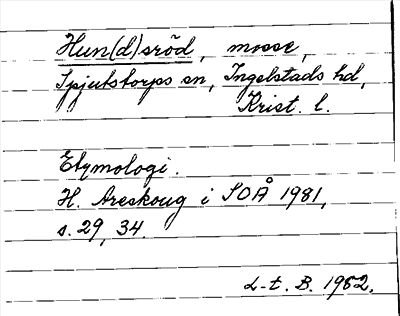 Hun(d)sröd, mosse,
Spjutstorps sn, Ingelstads hd,
Krist. l.
Etymologi.
H. Areskoug i SOÅ 1981,
s. 29, 34.
L-t. B. 1982.